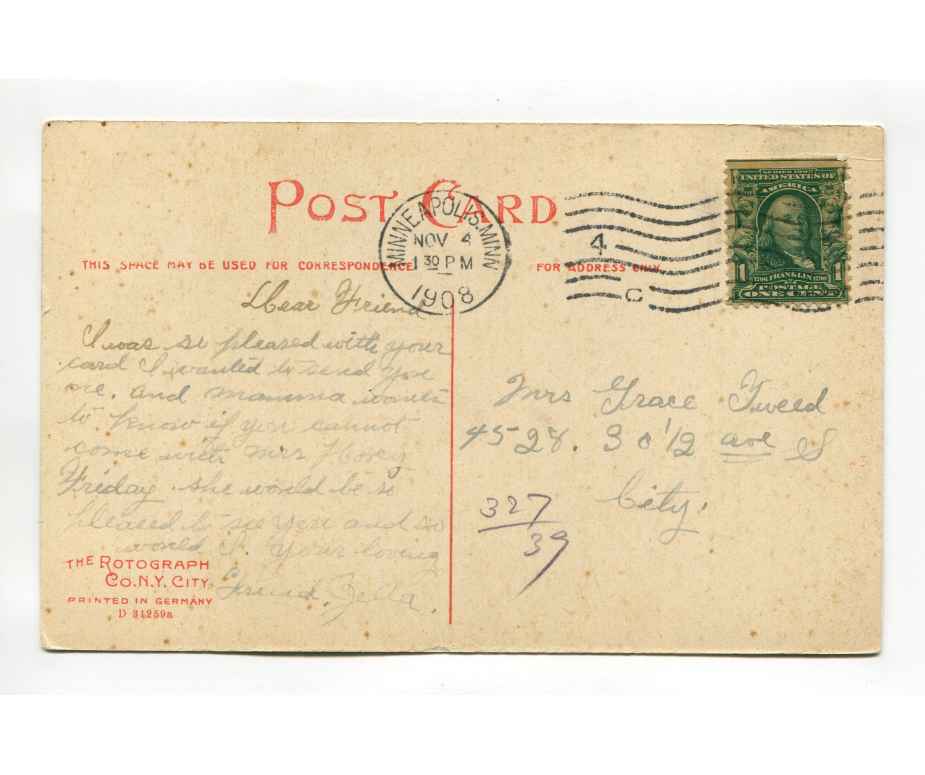 POST CARD
MINNEAPOLIS, MINN.
NOV 4
1 30 PM
1908
4
C
SERIES 1902
UNITED STATES OF
AMERICA
1 FRANKLIN 1
POSTAGE
ONE CENT
THIS SPACE MAY BE USED FOR CORRESPONDENCE
FOR ADDRESS ONLY
Dear Friend
I was so pleased with your
card I wanted to send you
one, and mamma wants
to know if you cannot
come with Mrs
Friday. she would be so
pleased to see you and so
would I. Your loving
friend, Zella.
Mrs Grace Tweed
4528. 30 1/2 ave S
City.
327
39
THE ROTOGRAPH
CO. N.Y. CITY
PRINTED IN GERMANY
D 31259a